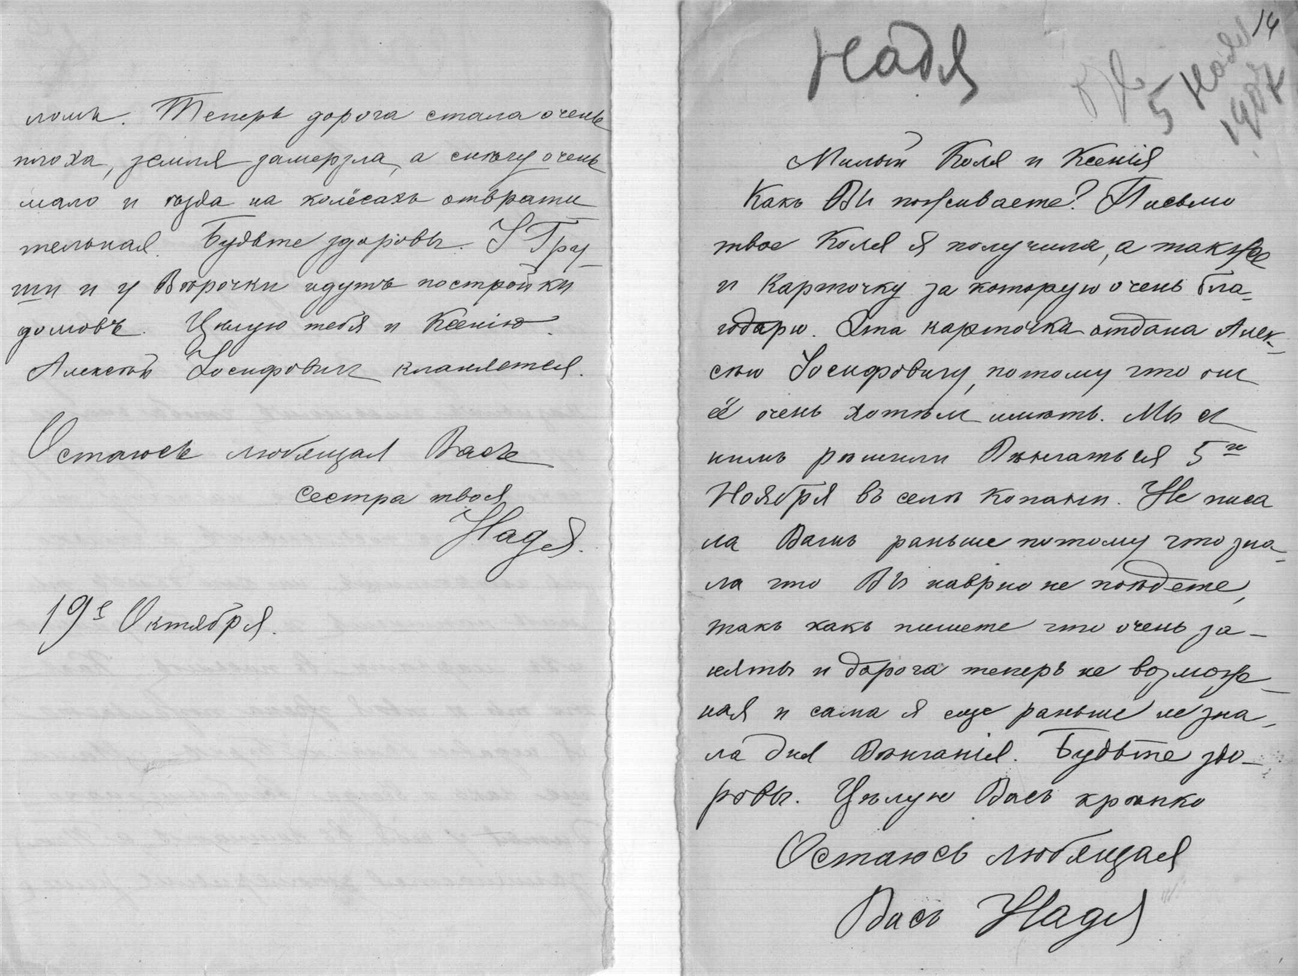 ломъ. Теперь дорога стала очень
плоха, земля замерзла, а снѣгу очень
мало и ѣзда на колёсахъ отврати
тельная. Будьте здоровы. У Гру-
ши и у Вѣрочки идутъ постройки
домовъ. Цѣлую тебя и Ксенію.
Алексѣй Іосифовичъ кланяется.
Остаюсь любящая Васъ
сестра твоя
Надя.
19е Октября.
14
Надя
5 Ноября
1907
Милый Коля и Ксенія
Какъ Вы поживаете? Письмо
твое Коля я получила, а также
и карточку за которую очень бла-
годарю. Эта карточка отдана Алек-
сѣю Іосифовичу, потому что он
её очень хотѣлъ имѣть. Мы с
нимъ рѣшили Вѣнчаться 5го
Ноября въ селѣ Копани. Не писа
ла Вамъ раньше потому что зна-
ла что Вы наврно не поѣдете,
такъ какъ пишете что очень за-
няты и дорога теперь не возмож-
ная и сама я еще раньше не зна-
ла дня Вѣнчанія. Будьте здо-
ровы. Цѣлую Васъ крѣпко
Остаюсь любящая
Васъ Надя